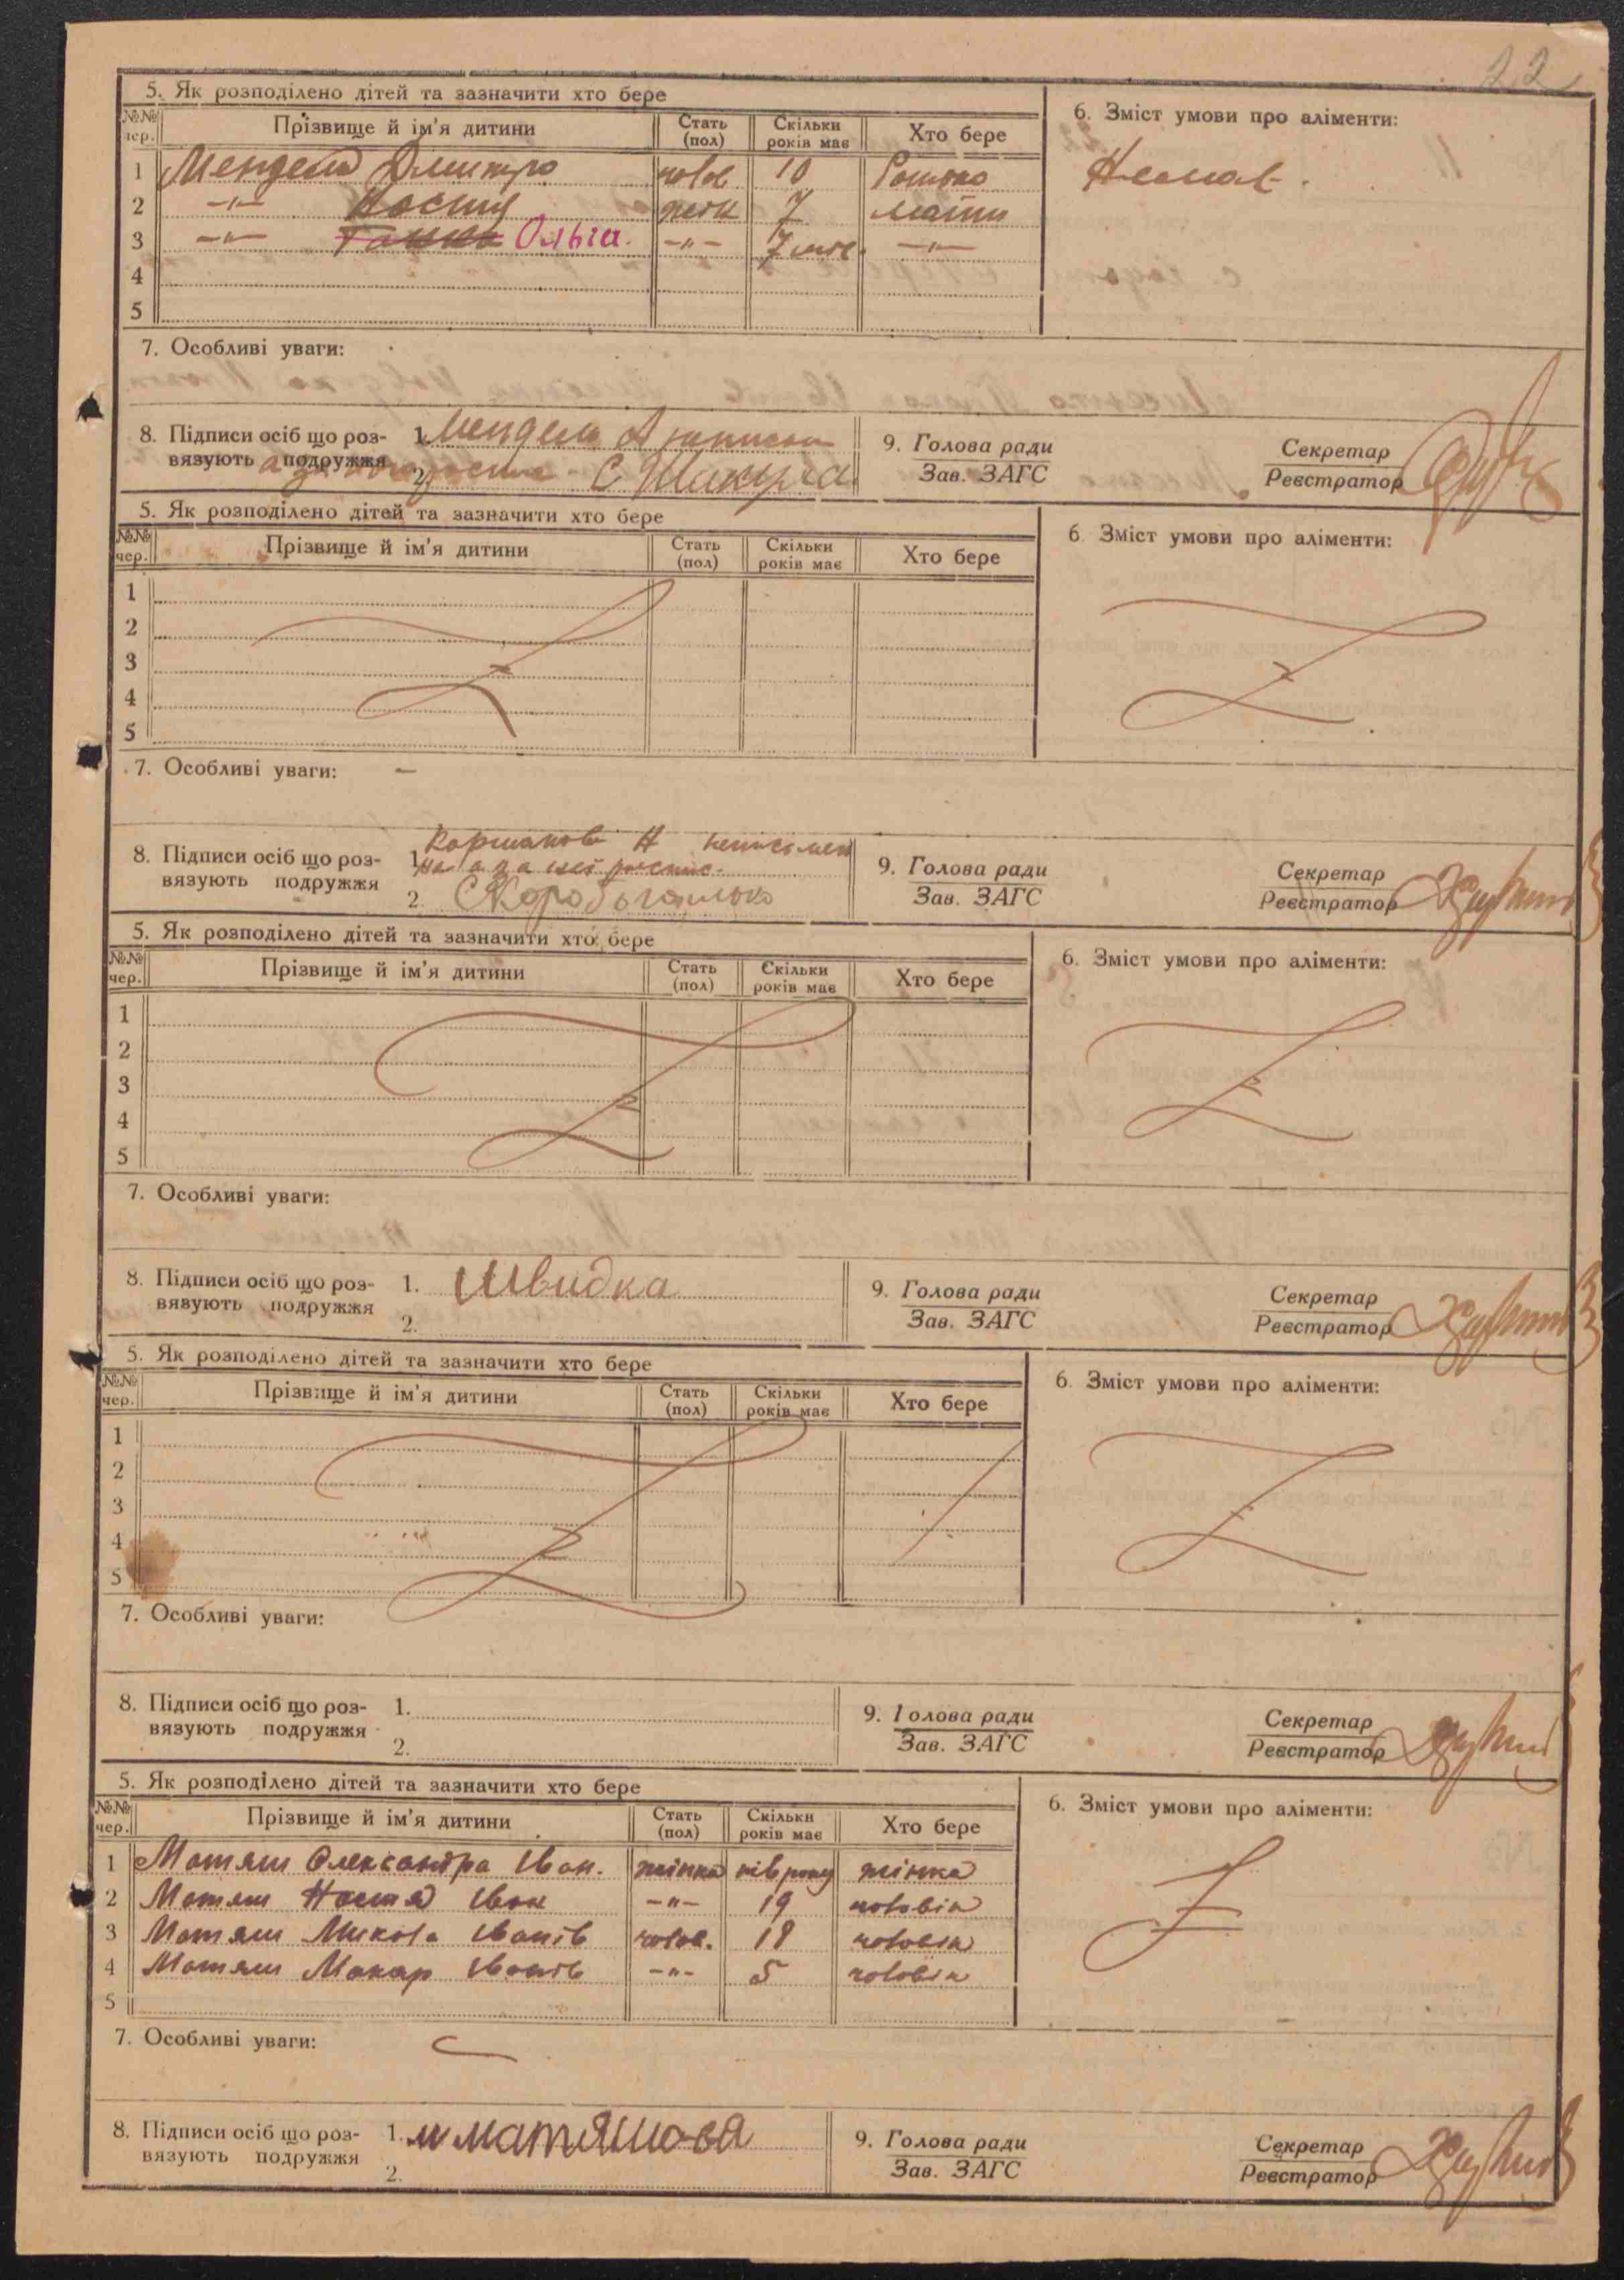 22
5. Як розподілено дітей та зазначити хто бере
6. Зміст умови про аліменти:
№№ чер. Прізвище й ім'я дитини Стать (пол) Скільки років має Хто бере
1 Мендель Дмитро чолов 10 Батько
Немає.
2 -"- Настя жінк 7 мати
3 -"- Ганна Ольга. -"- 7 міс. -"-
4
5
7. Особливі уваги:
8. Підписи осіб що роз-
вязують подружжя
1. Мендель А
2. С Шакула
9. Голова ради
Зав. ЗАГС
Секретар
Реєстратор
5. Як розподілено дітей та зазначити хто бере
6. Зміст умови про аліменти:
№№ чер. Прізвище й ім'я дитини Стать (пол) Скільки років має Хто бере
1
2
3
4
5
7. Особливі уваги: —
8. Підписи осіб що роз-
вязують подружжя
1. Коршакова Н неписьмен
на а за неї
2. Скоробогатько
9. Голова ради
Зав. ЗАГС
Секретар
Реєстратор
5. Як розподілено дітей та зазначити хто бере
6. Зміст умови про аліменти:
№№ чер. Прізвище й ім'я дитини Стать (пол) Скільки років має Хто бере
1
2
3
4
5
7. Особливі уваги:
8. Підписи осіб що роз-
вявують подружжя
1. Швидка
2.
9. Голова ради
Зав. ЗАГС
Секретар
Реєстратор
5. Як розподілено дітей та зазначити хто бере
6. Зміст умови про аліменти:
№№ чер. Прізвище й ім'я дитини Стать (пол) Скільки років має Хто бере
1
2
3
4
5
7. Особливі уваги:
8. Підписи осіб що роз-
вязують подружжя
1.
2.
9. Голова ради
Зав. ЗАГС
Секретар
Реєстратор
5. Як розподілено дітей та зазначити хто бере
6. Зміст умови про аліменти:
№№ чер. Прізвище й ім'я дитини Стать (пол) Скільки років має Хто бере
1 Матяш Олександра Іван. жінка півроку жінка
2 Матяш Настя Іван -"- 19 чоловік
3 Матяш Микола Іванів чолов. 18 чоловік
4 Матяш Макар Іванів -"- 5 чоловік
5
7. Особливі уваги:
8. Підписи осіб що роз-
вязують подружжя
1. М матяшова
2.
9. Голова ради
Зав. ЗАГС
Секретар
Реєстратор